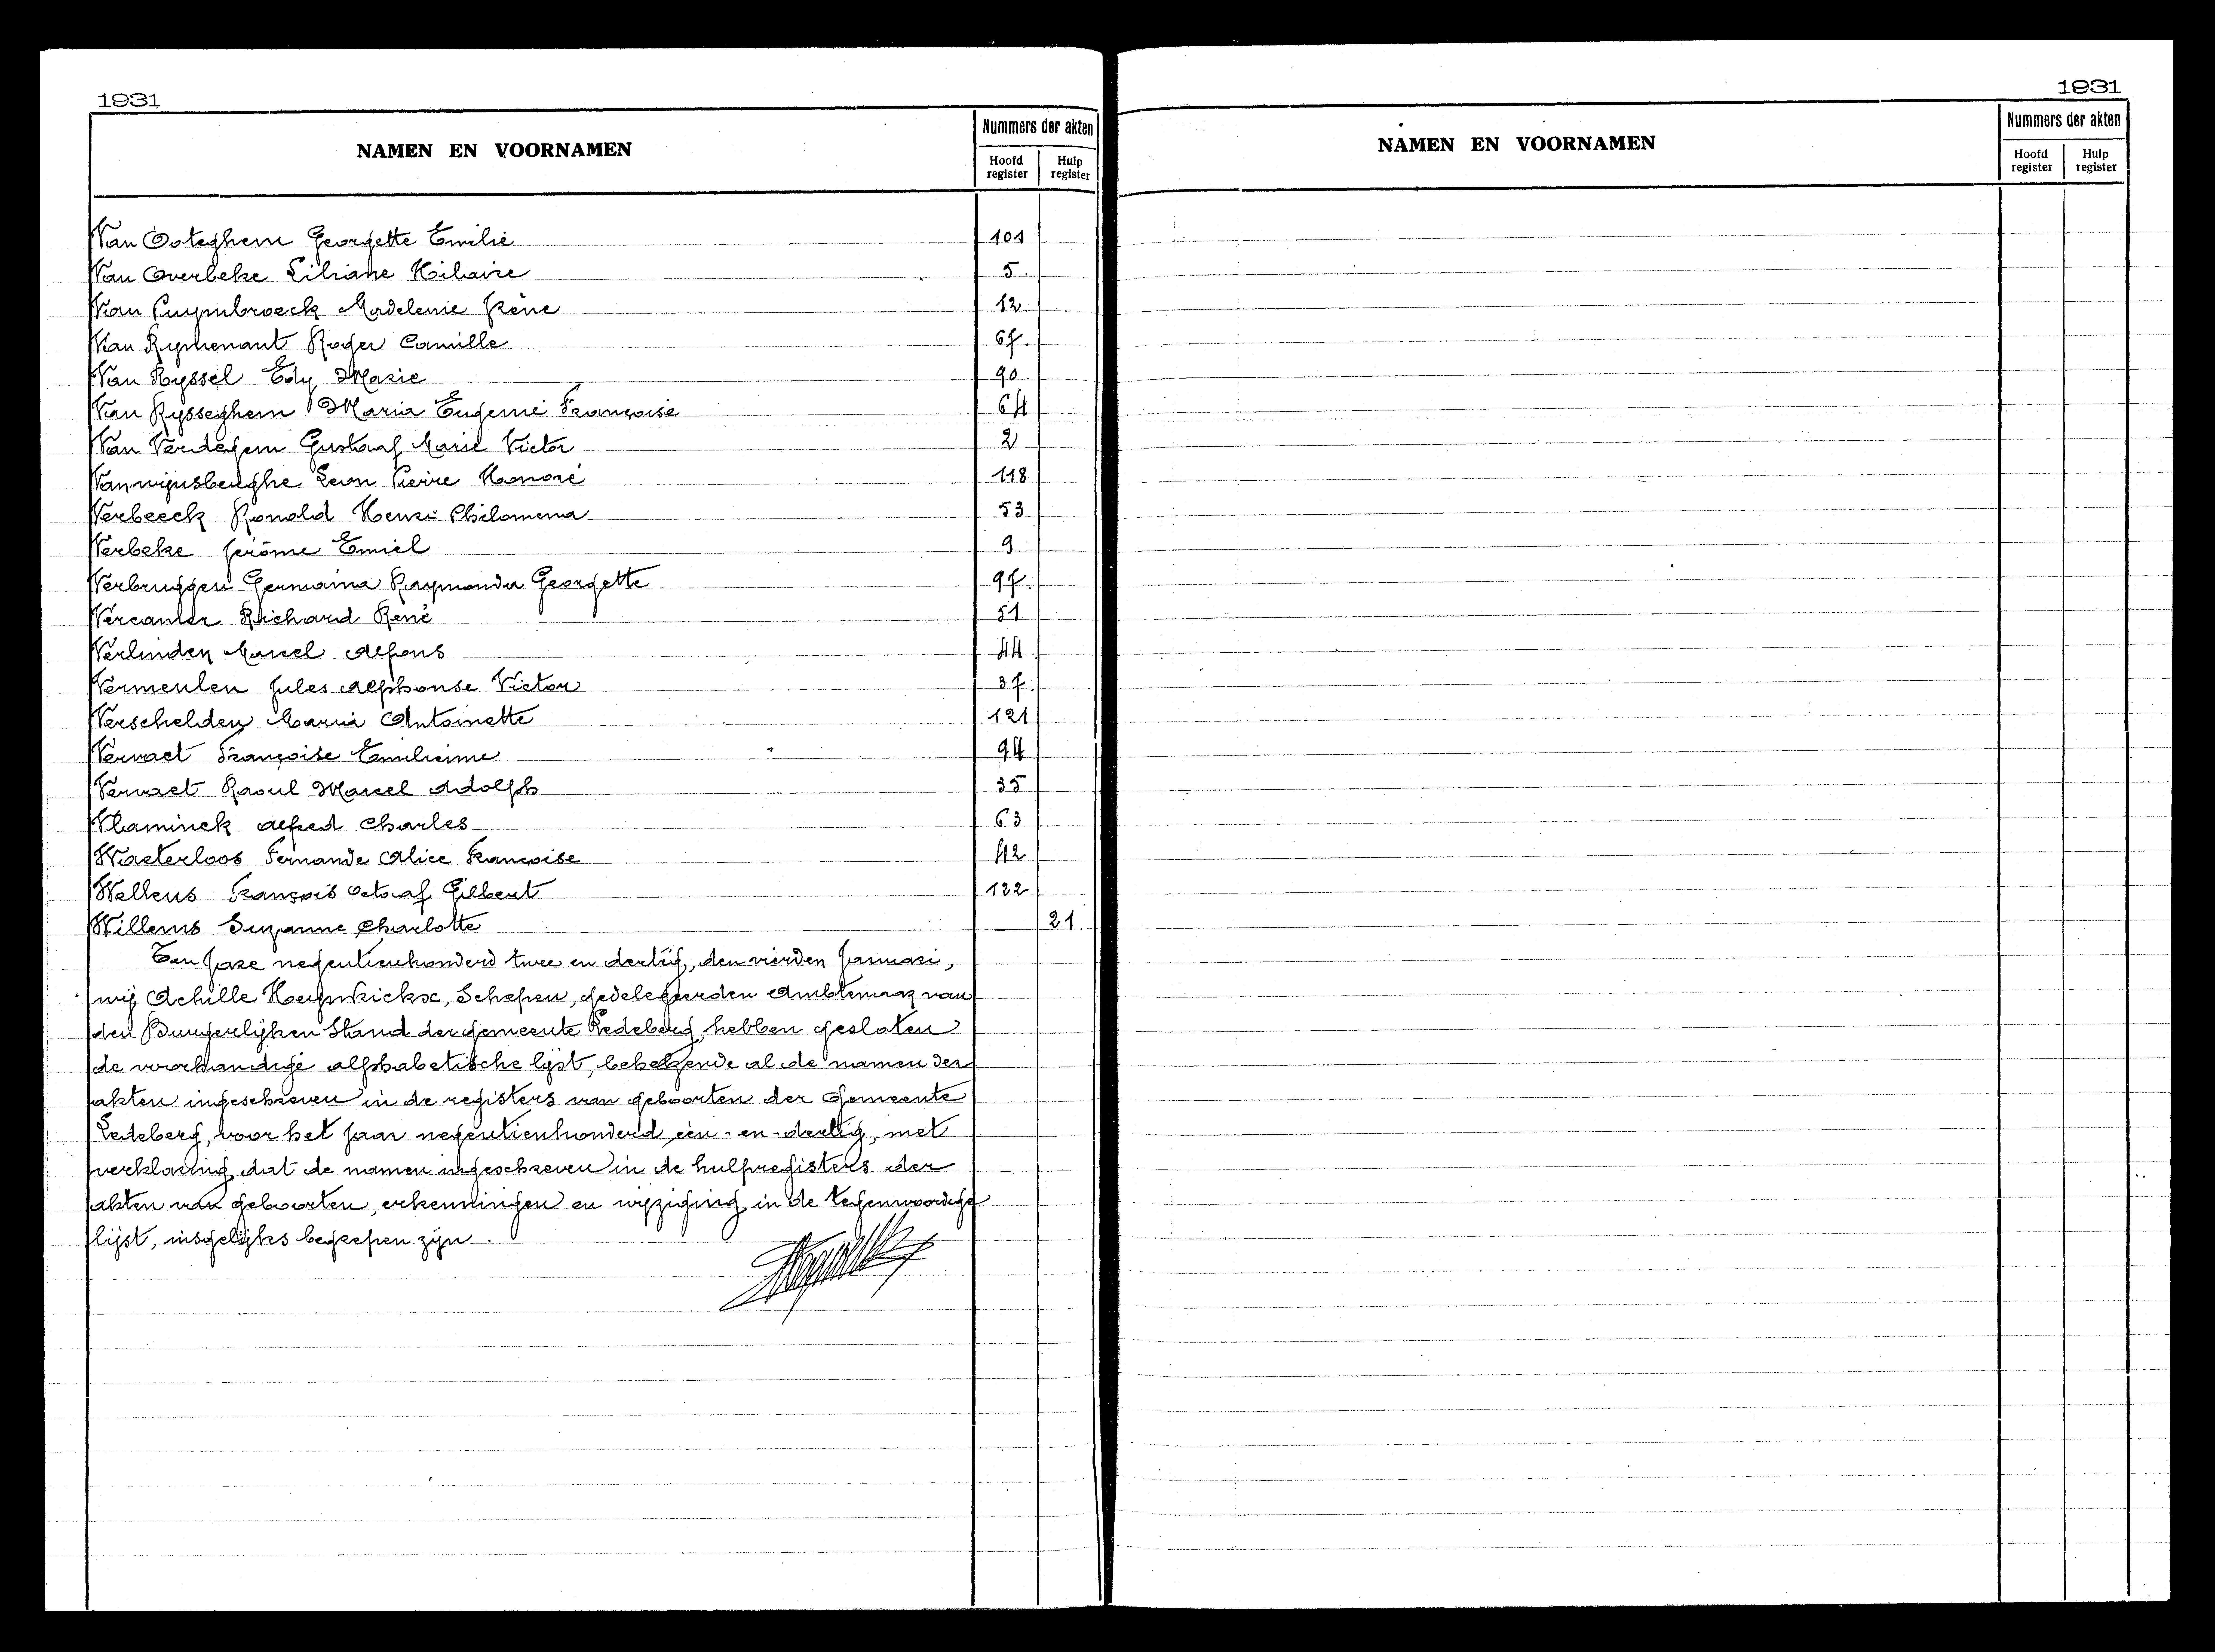 1931
NAMEN EN VOORNAMEN
Nummers der akten
Hoofd register
Hulp register
Van Ooteghem Georgette Emilie 101
Van Overbeke Liliane Hilaire 5
Van Puymbroeck Madeleine Irène 12
Van Rymenant Roger Camille 67
Van Ryssel Edy Marie 90
Van Rysseghem Maria Eugenie Françoise 64
Van Verdegem Gustaaf Marie Victor 2
Vanwijnsberghe Leon Pierre Honoré 118
Verbeeck Ronald Henri Philomena 53
Verbeke Jerôme Emiel 9
Verbruggen Germaina Raymonda Georgette 97
Vercauter Richard René 51
Verlinden Marcel Alfons 44
Vermeulen Jules Alphonse Victor 37
Verschelden Maria Antoinette 121
Vervaet Françoise Emilienne 94
Vervaet Raoul Marcel Adolph 35
Vlaminck Alfred Charles 63
Waeterloos Fernande Alice Françoise 42
Wellens François Octaaf Gilbert 122
Willems Suzanne Charlotte — 21
Ten jare negentienhonderd twee en dertig, den vierden Januari,
wij Achille Heyndrickx, Schepen, gedelegeerden Ambtenaar van
den Burgerlijken Stand der gemeente Ledeberg, hebben gesloten
de voorhandige alphabetische lijst, behelzende al de namen der
akten ingeschreven in de registers van geboorten der Gemeente
Ledeberg, voor het jaar negentienhonderd één-en-dertig, met
verklaring, dat de namen ingeschreven in de hulpregisters der
akten van geboorten, erkenningen en wijziging in de tegenwoordige
lijst, insgelijks begrepen zijn.
1931
NAMEN EN VOORNAMEN
Nummers der akten
Hoofd register
Hulp register